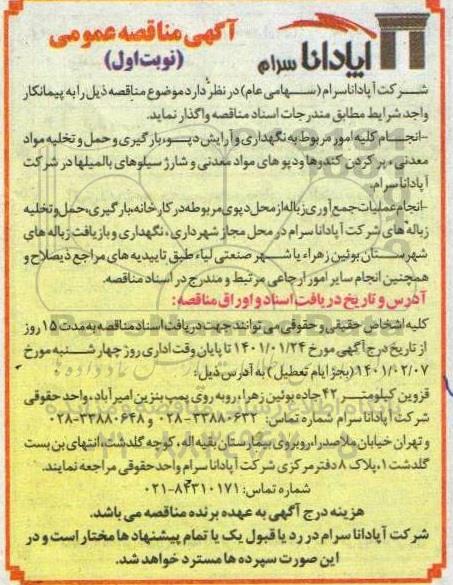 آگهی مناقصه عمومی
(نوبت اول)
آپادانا سرام
شرکت آپاداناسرام (سهامی عام) در نظر دارد موضوع مناقصه ذیل را به پیمانکار
واجد شرایط مطابق مندرجات اسناد مناقصه واگذار نماید.
-انجام کلیه امور مربوط به نگهداری و آرایش دپو، بارگیری و حمل و تخلیه مواد
معدنی، پر کردن کندوها و دپو های مواد معدنی و شارژ سیلوهای بالمیلها در شرکت
آپادانا سرام.
-انجام عملیات جمع آوری زباله از محل دپوی مربوطه در کارخانه، بارگیری، حمل و تخلیه
زباله های شرکت آپادانا سرام در محل مجاز شهرداری، نگهداری و بازیافت زباله های
شهرستان بوئین زهراء یا شهر صنعتی لیاء طبق تاییدیه های مراجع ذیصلاح و
همچنین انجام سایر امور ارجاعی مرتبط و مندرج در اسناد مناقصه.
آدرس و تاریخ دریافت اسناد و اوراق مناقصه:
کلیه اشخاص حقیقی و حقوقی می توانند جهت دریافت اسناد مناقصه به مدت ۱۵ روز
از تاریخ درج آگهی مورخ ۱۴۰۱/۰۱/۲۴ تا پایان وقت اداری روز چهارشنبه مورخ
۱۴۰۱/۰۲/۰۷ (بجز ایام تعطیل) به آدرس ذیل:
قزوین کیلومتر ۴۲ جاده بوئین زهرا، روبه روی پمپ بنزین امیرآباد، واحد حقوقی
شرکت آپادانا سرام شماره تماس: ۳۳۸۸۰۶۳۳-۰۲۸ و ۳۳۸۸۰۶۴۸-۰۲۸
و تهران خیابان ملاصدرا، روبروی بیمارستان بقیه اله، کوچه گلدشت، انتهای بن بست
گلدشت ۱، پلاک ۸ دفتر مرکزی شرکت آپادانا سرام واحد حقوقی مراجعه نمایند.
شماره تماس: ۸۴۳۱۰۱۷۱-۰۲۱
هزینه درج آگهی به عهده برنده مناقصه می باشد.
شرکت آپادانا سرام در رد یا قبول یک یا تمام پیشنهاد ها مختار است و در
این صورت سپرده ها مسترد خواهد شد.